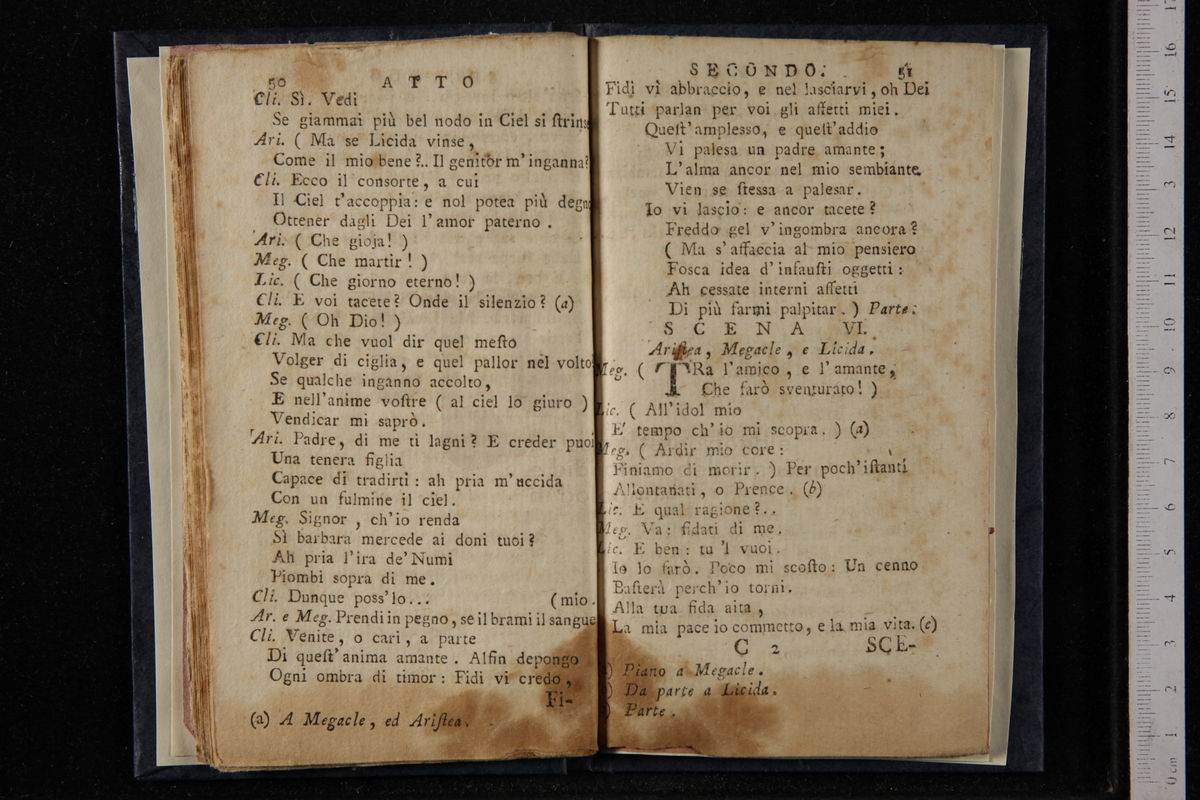 50 ATTO
Cli. Sì. Vedi
Se giammai più bel nodo in Ciel si ſtrinse
Ari. ( Ma se Licida vinse,
Come il mio bene?.. Il genitor m'inganna?
Cli. Ecco il consorte, a cui
Il Ciel t'accoppia: e nol potea più degno
Ottener dagli Dei l'amor paterno.
Ari. ( Che gioja! )
Meg. ( Che martir! )
Lic. ( Che giorno eterno! )
Cli. E voi tacete? Onde il silenzio? (a)
Meg. ( Oh Dio! )
Cli. Ma che vuol dir quel meſto
Volger di ciglia, e quel pallor nel volto?
Se qualche inganno accolto,
E nell'anime voſtre ( al ciel lo giuro )
Vendicar mi saprò.
Ari. Padre, di me ti lagni? E creder puoi
Una tenera figlia
Capace di tradirti: ah pria m'uccida
Con un fulmine il ciel.
Meg. Signor, ch'io renda
Sì barbara mercede ai doni tuoi?
Ah pria l'ira de' Numi
Piombi sopra di me.
Cli. Dunque poss'Io... (mio.
Ar. e Meg. Prendi in pegno, se il brami il sangue
Cli. Venite, o cari, a parte
Di queſt'anima amante. Alfin depongo
Ogni ombra di timor: Fidi vi credo,
Fi-
(a) A Megacle, ed Ariſtea.
SECONDO. 51
Fidi vi abbraccio, e nel lasciarvi, oh Dei
Tutti parlan per voi gli affetti miei.
Queſt'amplesso, e queſt'addio
Vi palesa un padre amante;
L'alma ancor nel mio sembiante
Vien se ſtessa a palesar.
Io vi lascio: e ancor tacete?
Freddo gel v'ingombra ancora?
( Ma s'affaccia al mio pensiero
Fosca idea d'infauſti oggetti:
Ah cessate interni affetti
Di più farmi palpitar. ) Parte.
SCENA VI.
Ariſtea, Megacle, e Licida.
Meg. ( TRa l'amico, e l'amante,
Che farò sventurato! )
Lic. ( All'idol mio
E' tempo ch'io mi scopra. ) (a)
Meg. ( Ardir mio core:
Finiamo di morir. ) Per poch'iſtanti
Allontanati, o Prence. (b)
Lic. E qual ragione?..
Meg. Va: fidati di me.
Lic. E ben: tu 'l vuoi.
Io lo farò. Poco mi scoſto: Un cenno
Baſterà perch'io torni.
Alla tua fida aita,
La mia pace io commetto, e la mia vita. (c)
C 2 SCE-
) Piano a Megacle.
) Da parte a Licida.
) Parte.